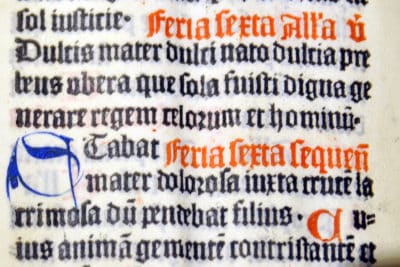 sol iusticie. Feria sexta Alla v̄
Dulcis mater dulci nato dulcia pre
bens vbera que sola fuisti digna ge
nerare regem celorum et hominū.
STabat Feria sexta sequen̄
mater dolorosa iuxta crucē la
crimosa dū pendebat filius. C u-
ius animā gementē contristantē et